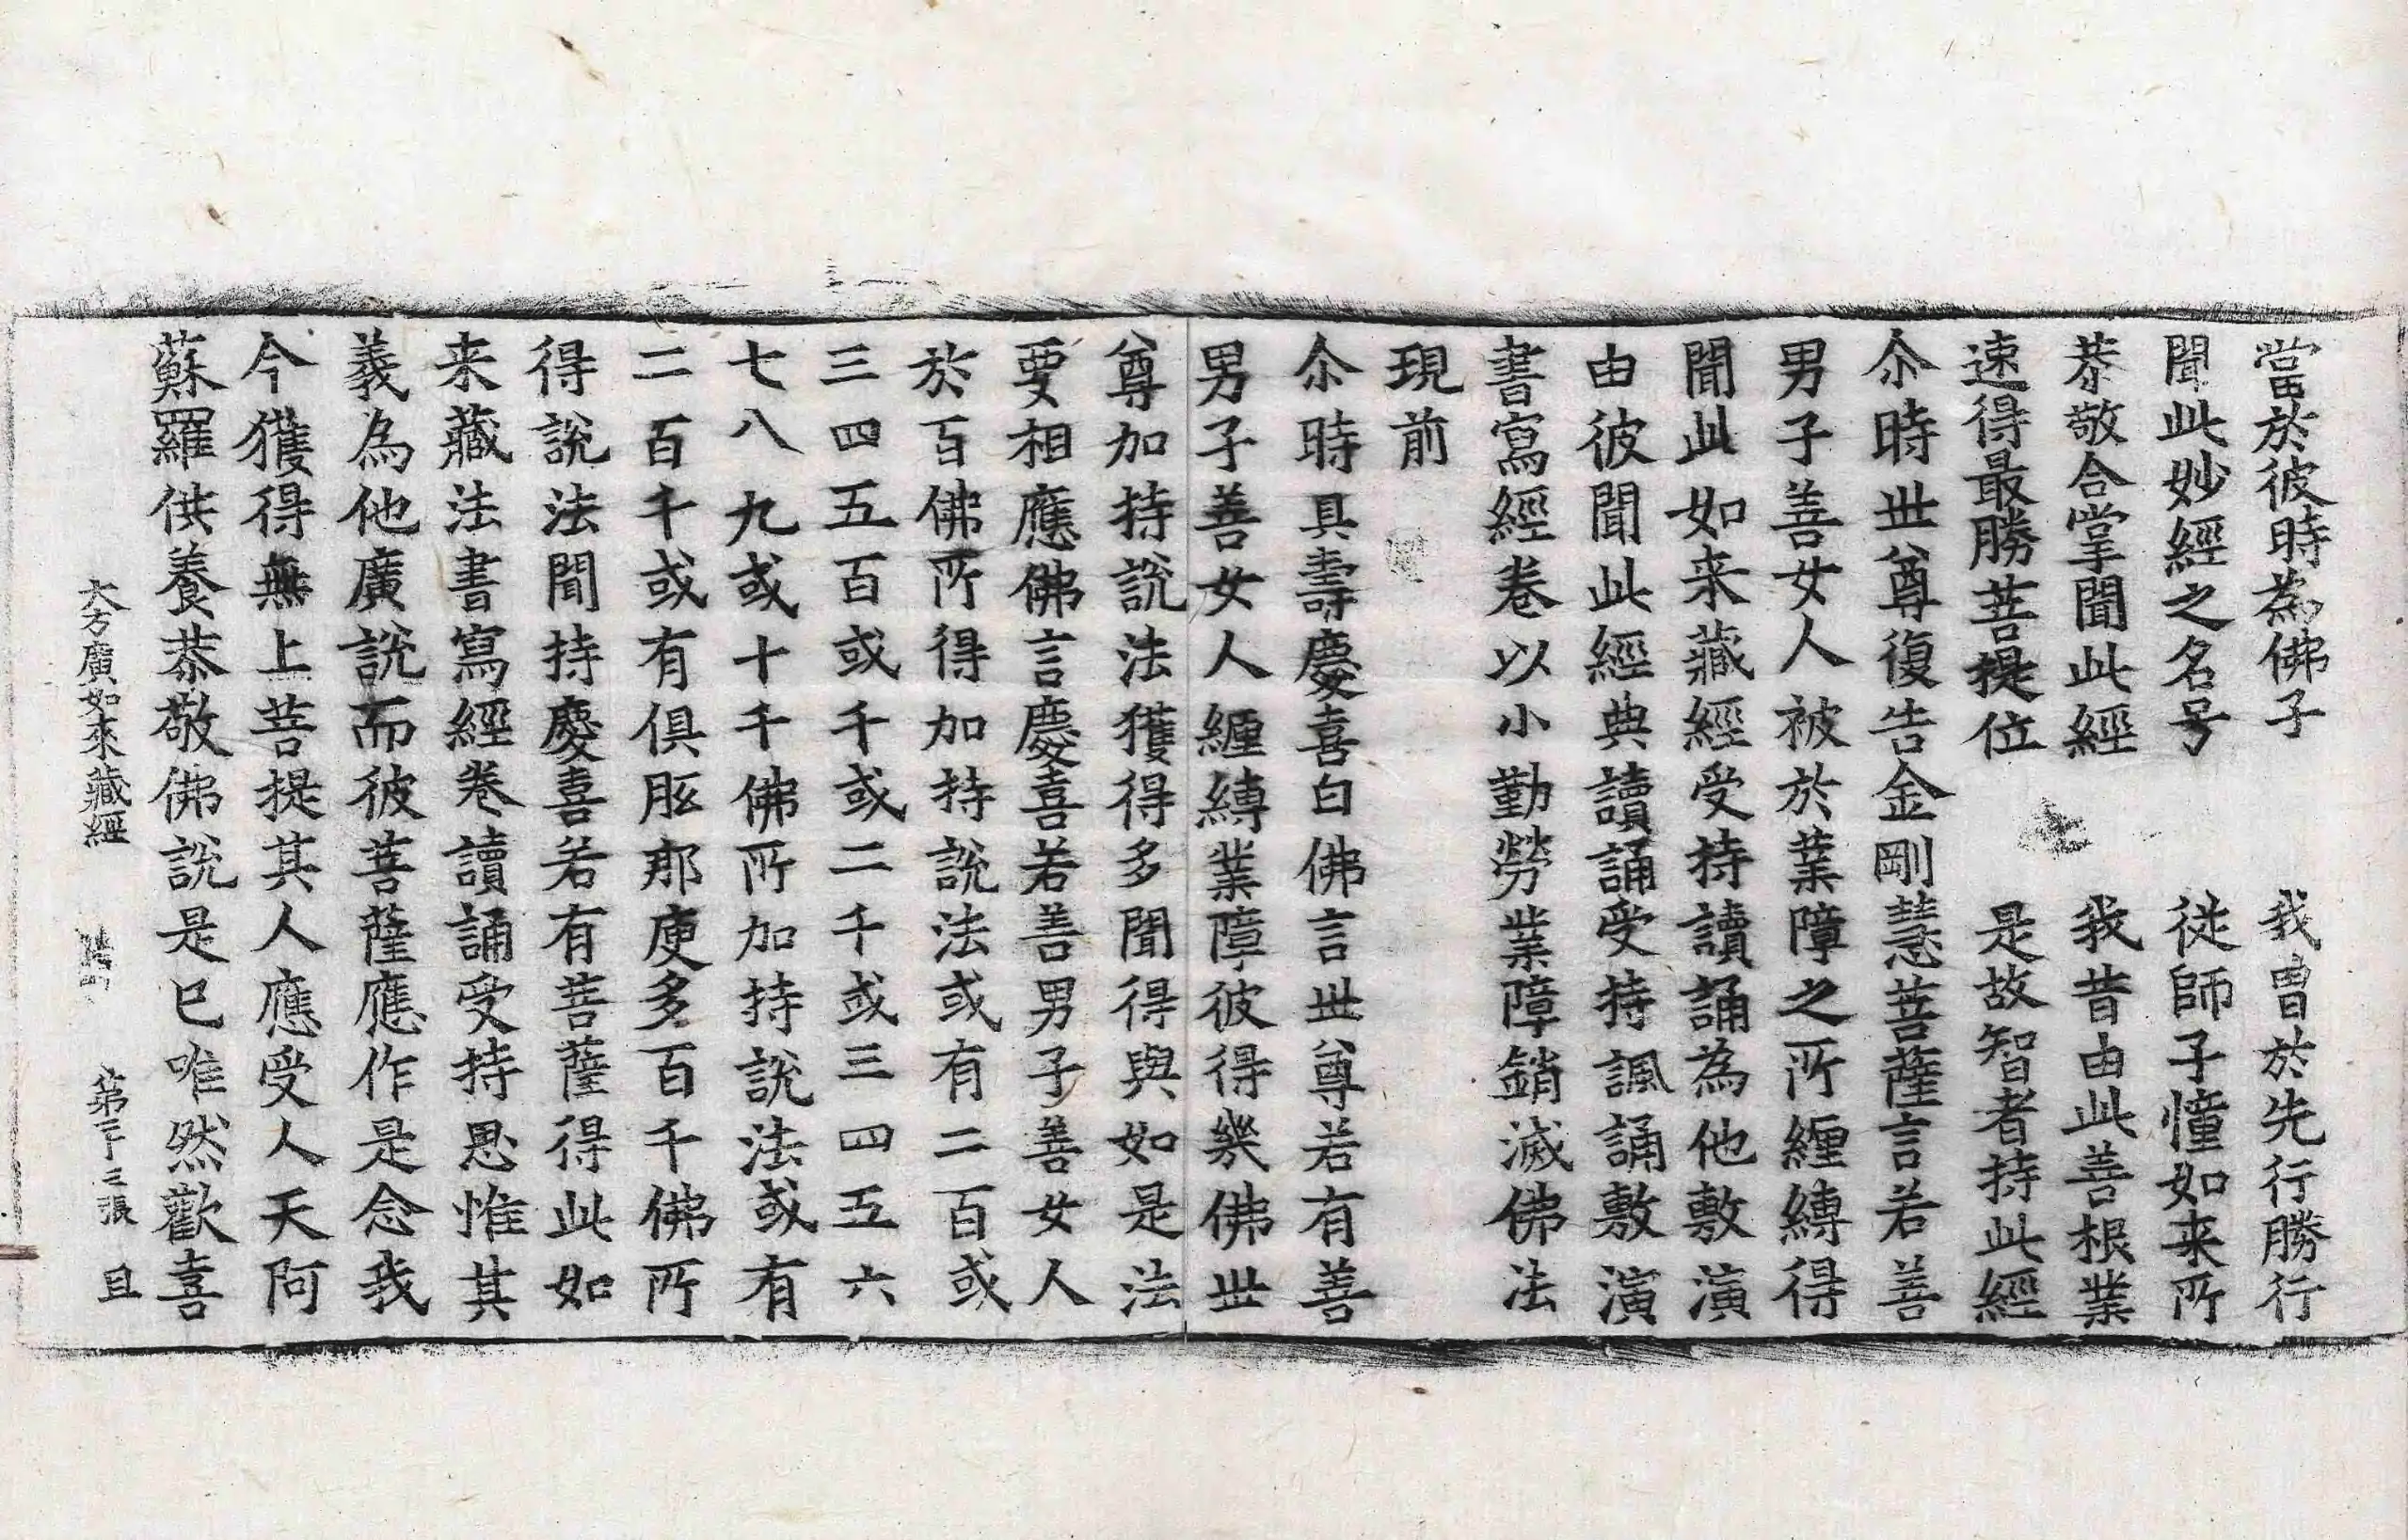 當於彼時為佛子　我曾於先行勝行
聞此妙經之名号　從師子憧如来所
恭敬合掌聞此經　我昔由此善根業
速得最勝菩提位　是故智者持此經
尒時世尊復告金剛慧菩薩言若善
男子善女人被於業障之所纏縛得
聞此如来藏經受持讀誦為他敷演
由彼聞此經典讀誦受持諷誦敷演
書寫經卷以小勤勞業障銷滅佛法
現前
尒時具壽慶喜白佛言世尊若有善
男子善女人纏縛業障彼得幾佛世
尊加持說法獲得多聞得與如是法
要相應佛言慶喜若善男子善女人
於百佛所得加持說法或有二百或
三四五百或千或二千或三四五六
七八九或十千佛所加持說法或有
二百千或有俱胝那庾多百千佛所
得說法聞持慶喜若有菩薩得此如
来藏法書寫經卷讀誦受持思惟其
義為他廣說而彼菩薩應作是念我
今獲得無上菩提其人應受人天阿
蘇羅供養恭敬佛說是已唯然歡喜
大方廣如來藏經　第二十三張　且